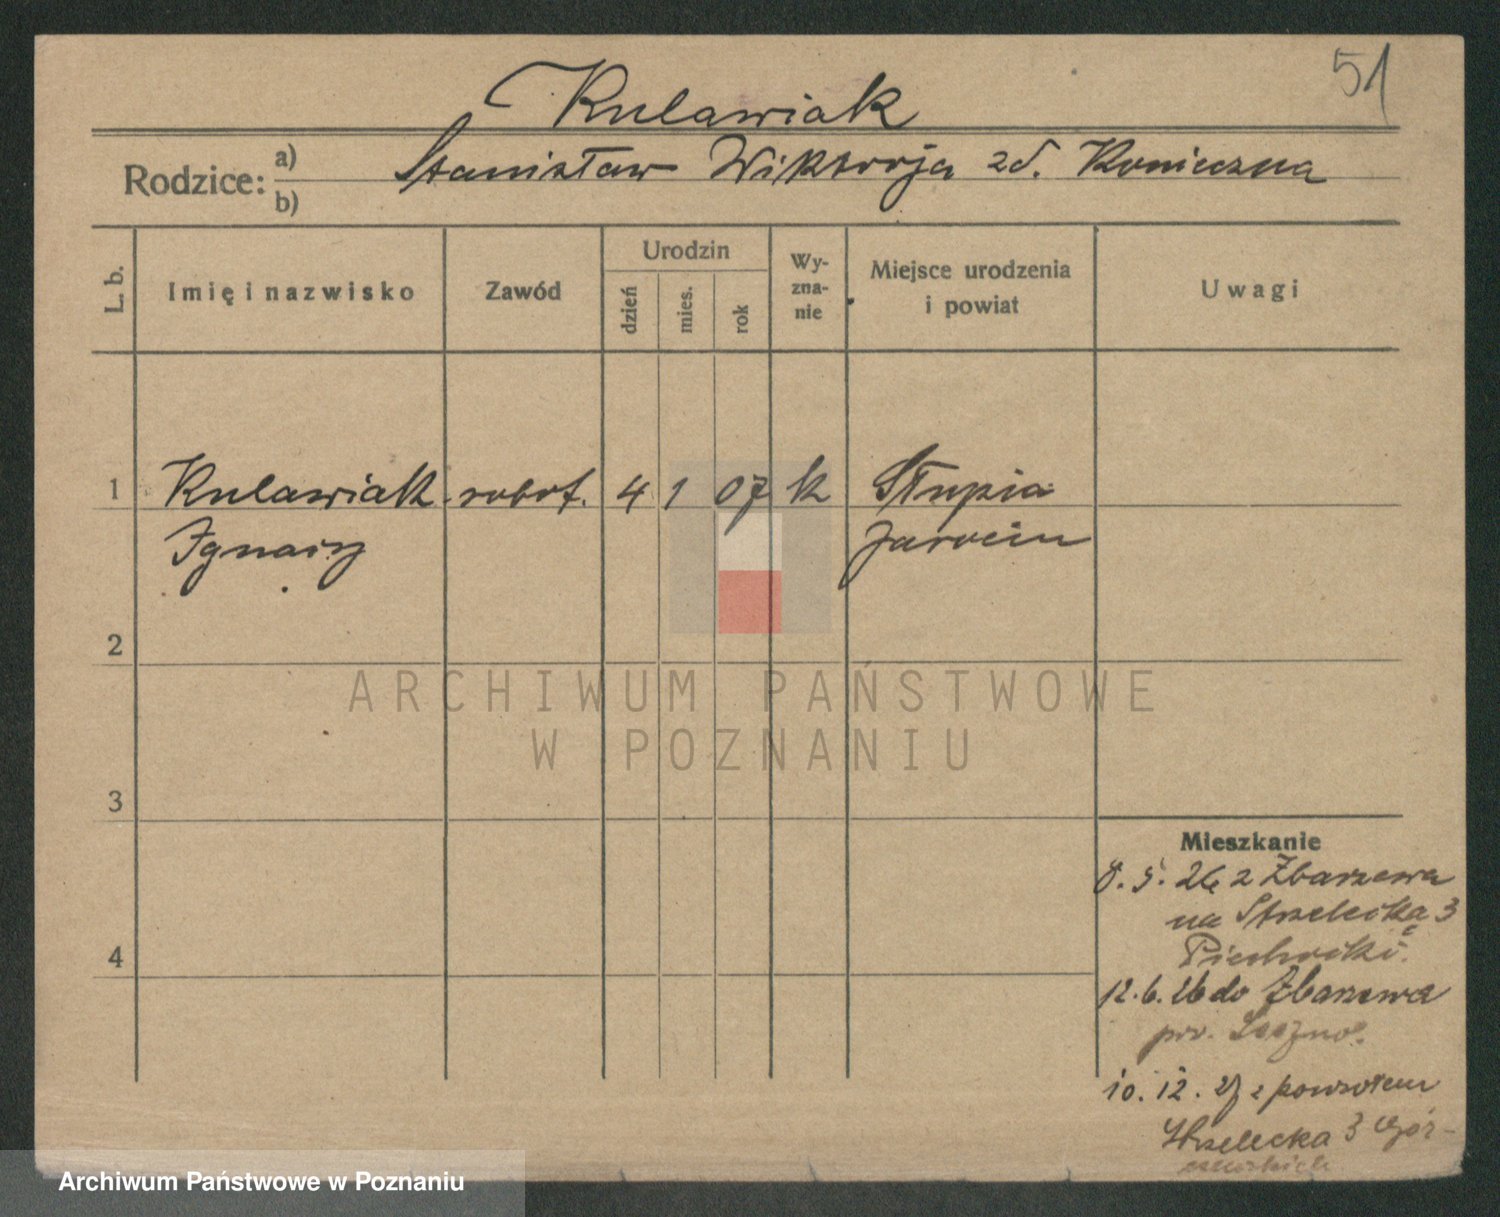 51
Kulawiak
Rodzice: a) b) Stanisław Wiktorja zd. Konieczna
L. b. Imię i nazwisko Zawód Urodzin dzień mies. rok Wy- zna- nie Miejsce urodzenia i powiat Uwagi
1 Kulawiak robot. 4 1 07 k Słupia
Ignacy Jarocin
2
ARCHIWUM PAŃSTWOWE
W POZNANIU
3
Mieszkanie
8. 5. 26 z Zbarzewa
na Strzelecką 3
4
12. 6. 26 do Zbarzewa
pow. Leszno.
10. 12. z powrotem
Strzelecka 3
Archiwum Państwowe w Poznaniu